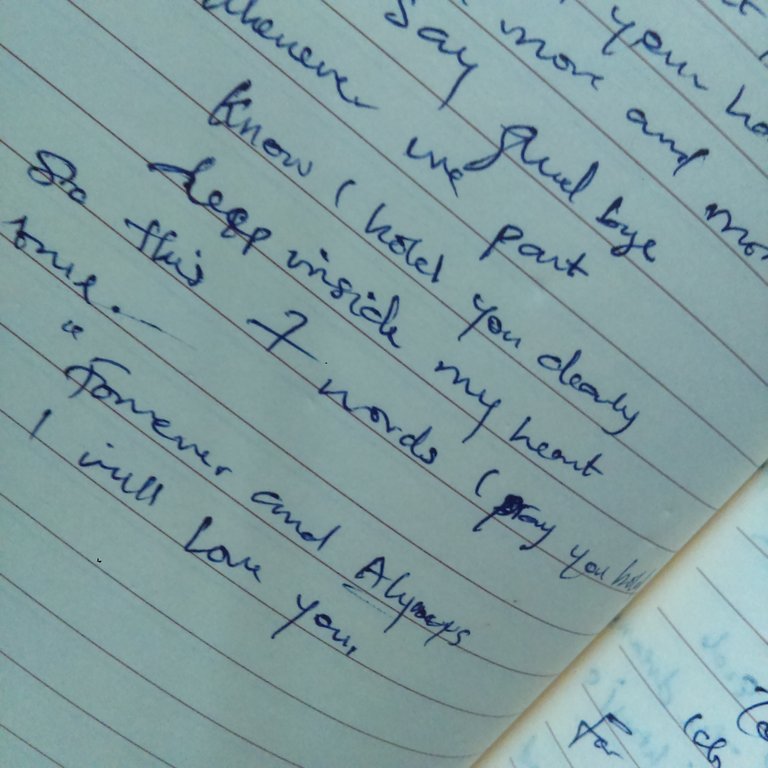 your
more and
Say Gud bye
Whenever we part
Know I hold you dearly
deep inside my heart
So this 7 words I pray you hold
true.
"Forever and Always
I will Love you,
for